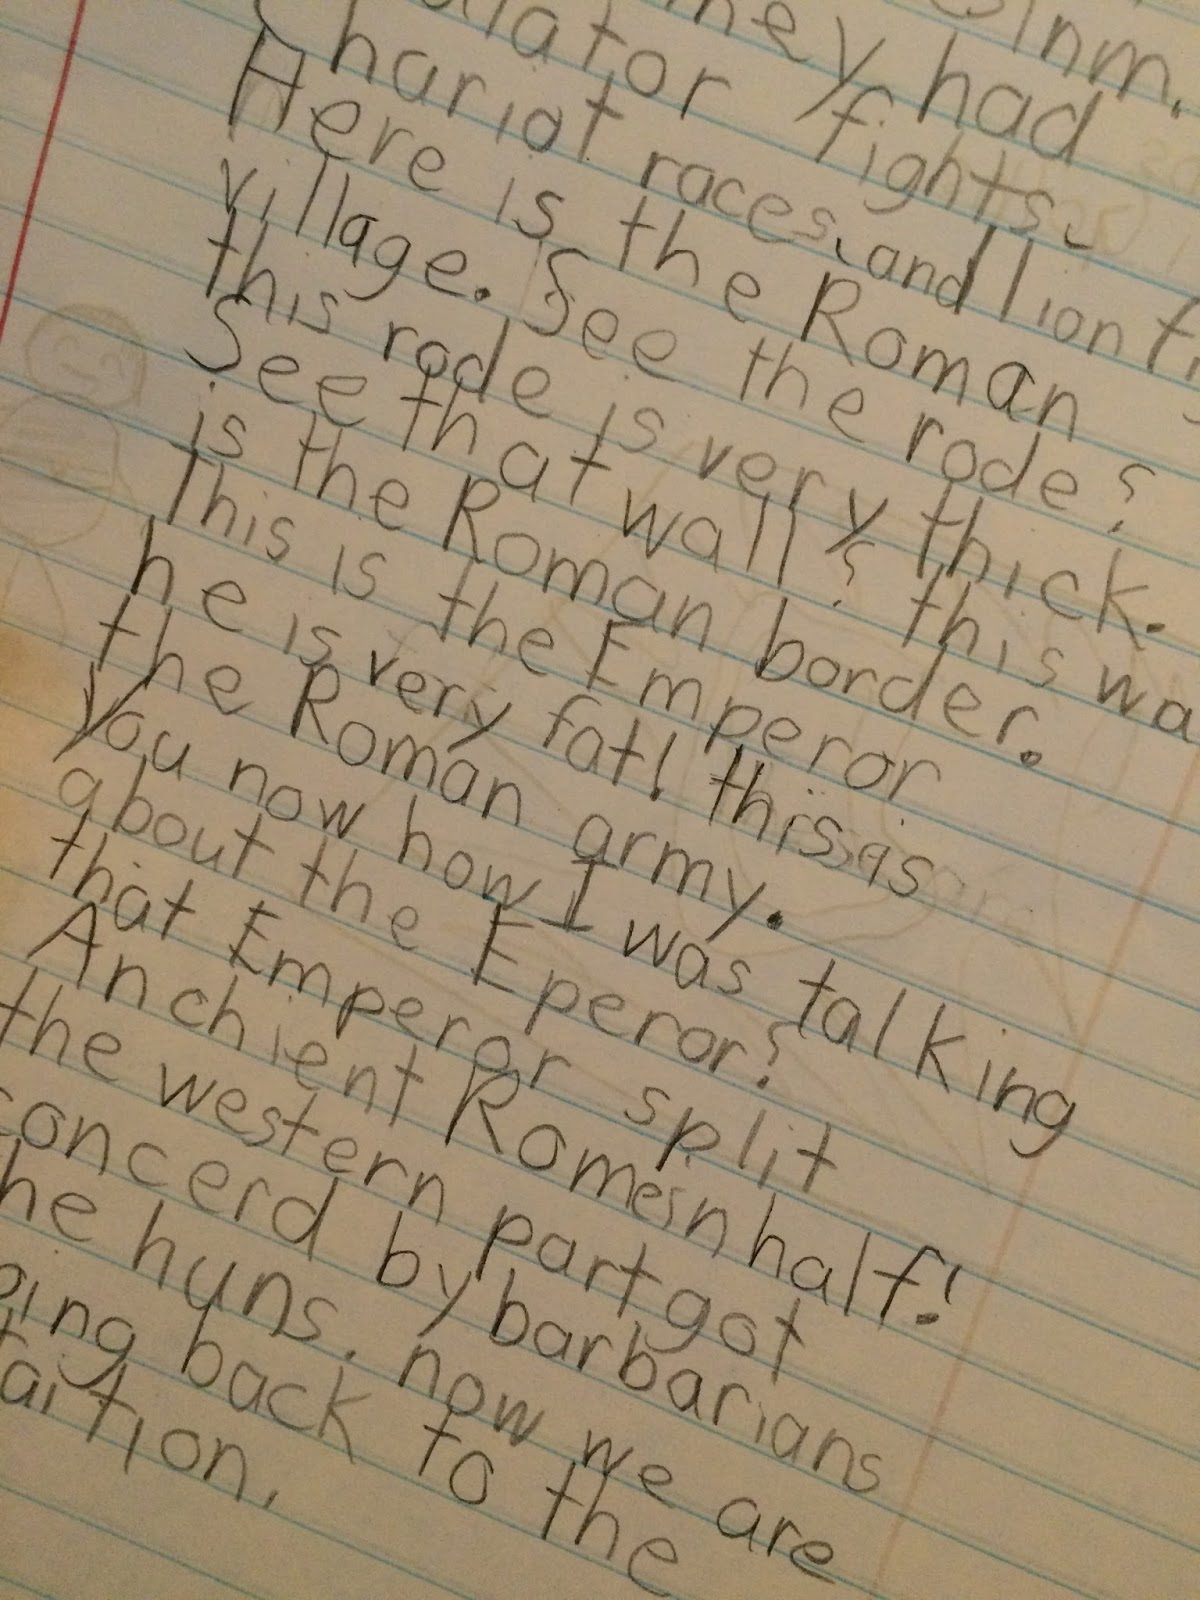 they had
fights.
Chariot races, and lion
Here is the Roman
village. See the rode?
this rode is very thick.
See that wall? this
is the Roman border.
This is the Emperor
he is very fat! this is
the Roman army.
You now how I was talking
about the Eperor?
that Emperor split
Anchient Rome in half!
the western part got
concerd by barbarians
huns. now we are
back to the